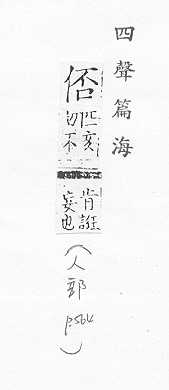 四聲篇海
俖
匹亥
切不
肯誑
妄也
(人部 p.564)